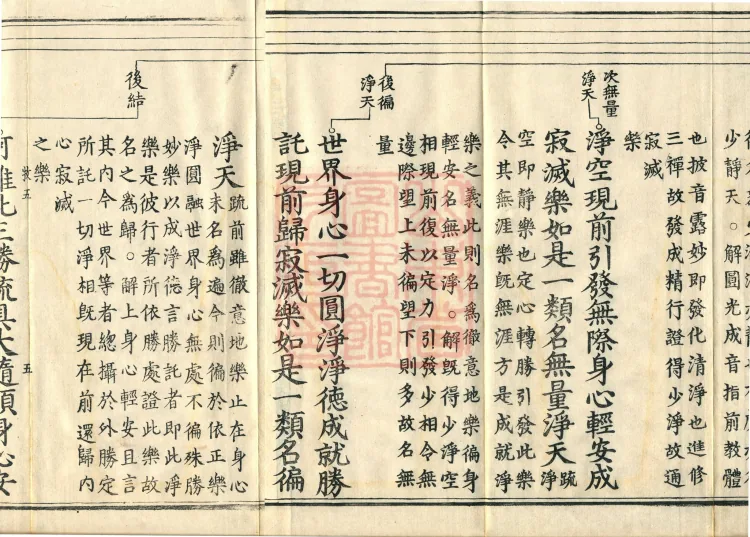 少靜天。解圓光成音指前教體
也披音露妙即發化清淨也進修
三禪故發成精行證得少淨故通
寂滅
樂
次無量
淨天
淨空現前引發無際身心輕安成
寂滅樂如是一類名無量淨天疏
淨
空即靜樂也定心轉勝引發此樂
令其無涯樂旣無涯方是成就淨
樂之義此則名為徹意地樂徧身
輕安名無量淨。解旣得少淨空
相現前復以定力引發少相令無
邊際望上未徧望下則多故名無
量
後徧
淨天
世界身心一切圓淨淨德成就勝
託現前歸寂滅樂如是一類名徧
淨天疏前雖徹意地樂止在身心
未名為遍今則徧於依正樂
淨圓融世界身心無處不徧殊勝
妙樂以成淨德言勝託者即此淨
樂是彼行者所依勝處證此樂故
名之為歸。解上身心輕安且言
其內今世界等者總攝於外勝定
所託一切淨相旣現在前還歸內
心寂滅
之樂
後結
五
難此三勝流具大隨順身心安